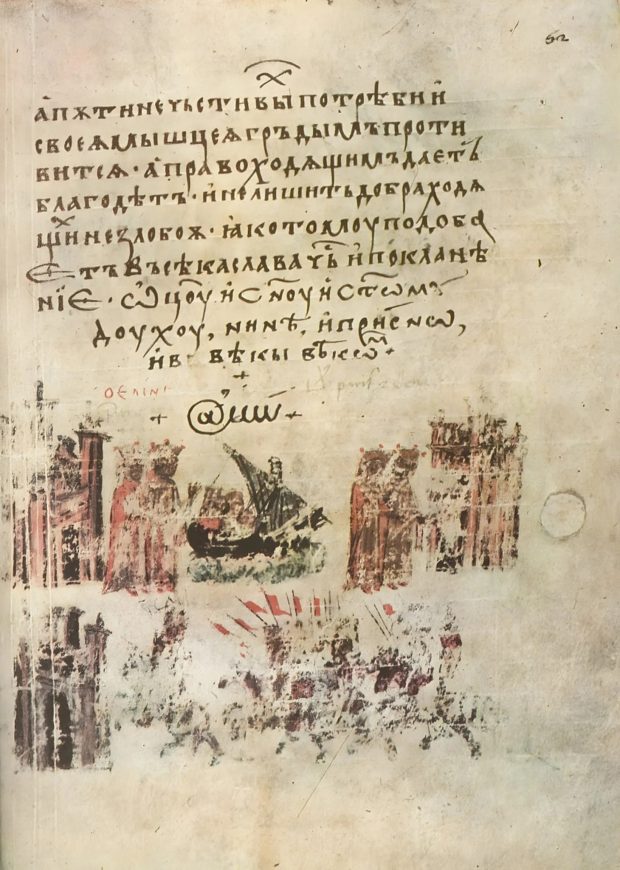 62
апѫтинечьстивыⷯпотрѣбий
своеѧмышцеѧгръдымъпроти
витсѧ · аправоходѧщимъдаетъ
благодѣть · инелишитьдобраходѧ
щиⷯнезлобоѫ · ꙗкотомоуподоба
етъвъсѣкаславачⷭ҇ьипокланѣ
нїе · ѿцоу и сн҃оу и ст҃омꙋ
доухоу, нинѣ, и приснѡ,
ив вѣкы вѣкѡⷨ +
+ амин +